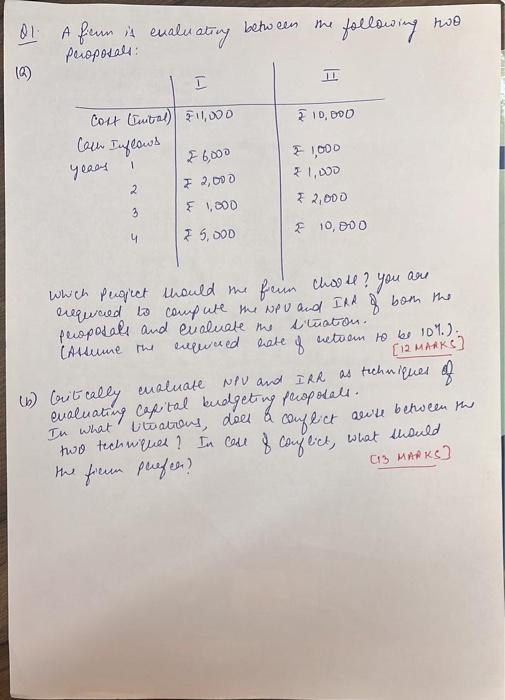 Q1. A firm is evaluating between the following two
proposals:
(a)
I II
Cost (Initial) ₹ 11,000 ₹ 10,000
Cash Inflows
years 1 ₹ 6,000 ₹ 1,000
2 ₹ 2,000 ₹ 1,000
3 ₹ 1,000 ₹ 2,000
4 ₹ 5,000 ₹ 10,000
Which project should the firm choose? You are
required to compute the NPV and IRR of both the
proposals and evaluate the situation.
(Assume the required rate of return to be 10%.).
[12 MARKS]
(b) Critically evaluate NPV and IRR as techniques of
evaluating capital budgeting proposals.
In what situations, does a conflict arise between the
two techniques? In case of conflict, what should
the firm prefer?
[13 MARKS]